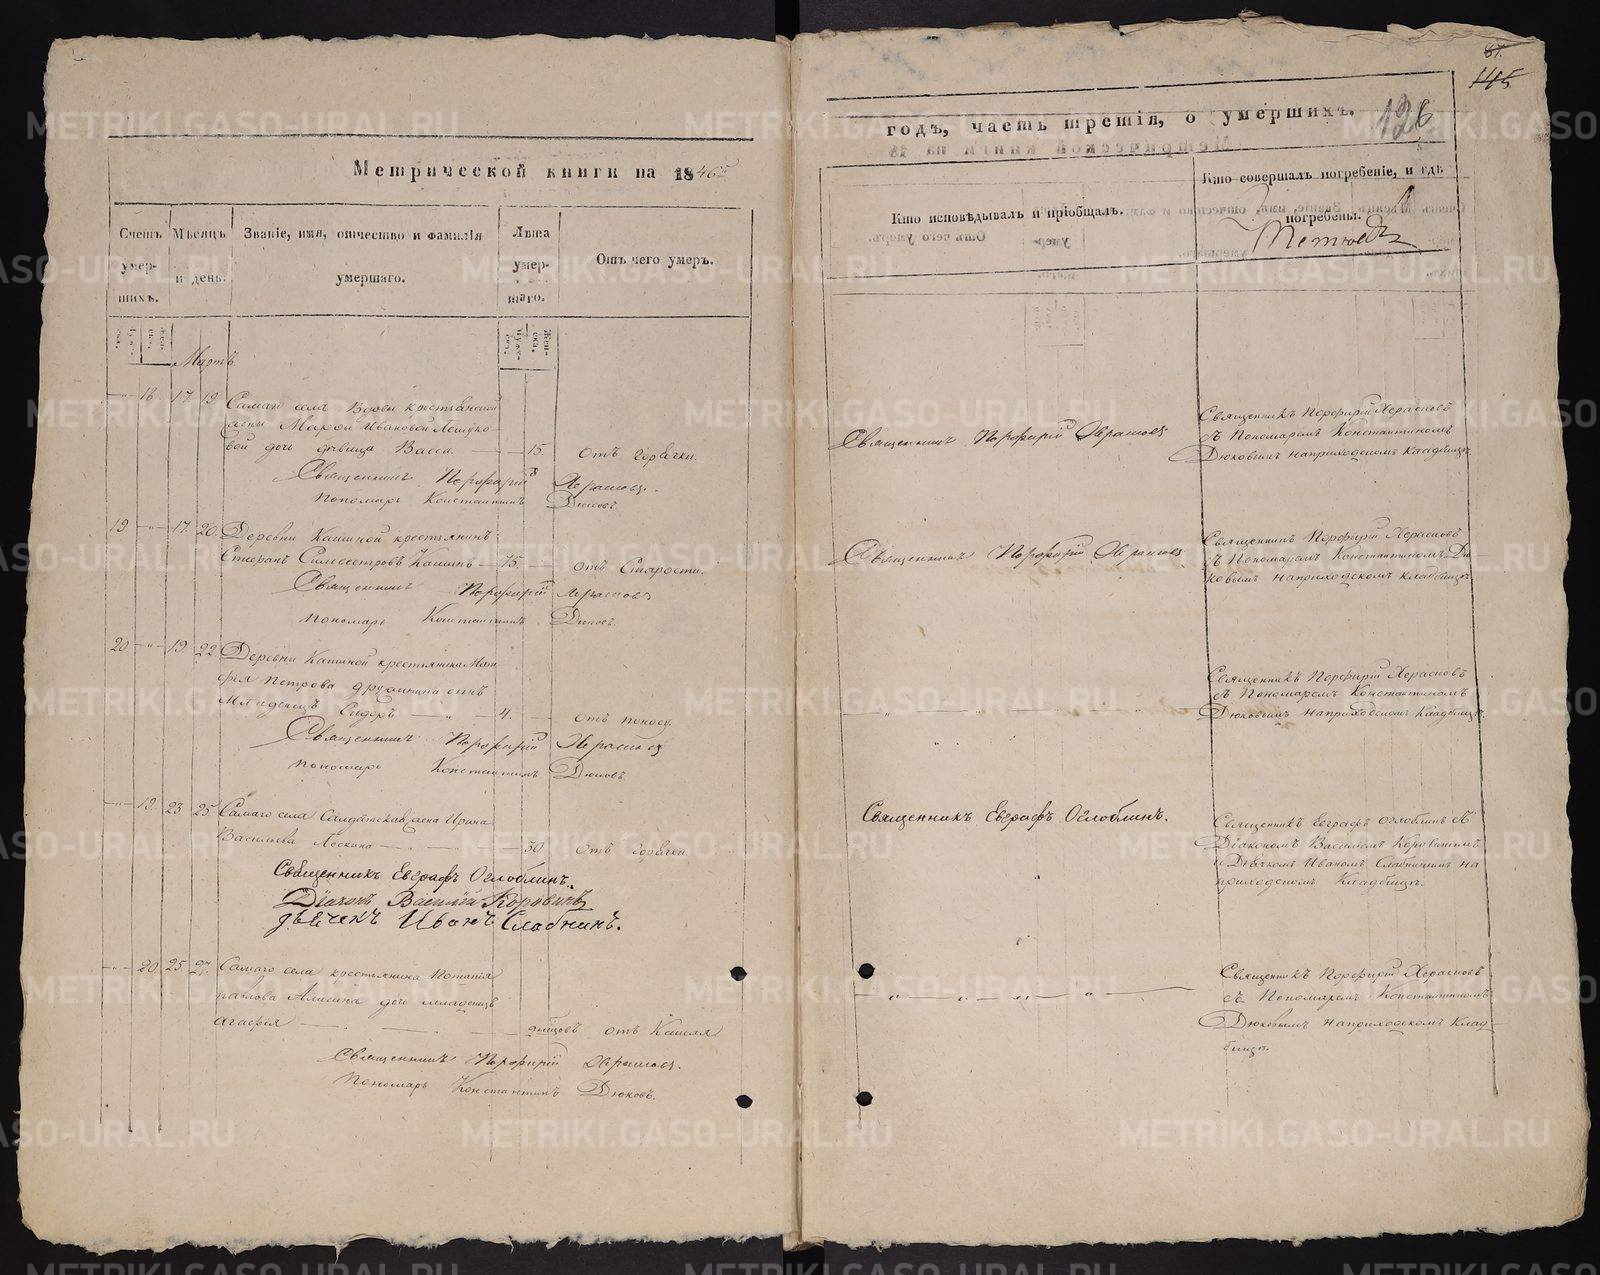 Метрической книги на 1846й
Счетъ умершихъ.
Мѣсяцъ и день.
Званіе, имя, отчество и фамилія умершаго.
Лѣта умершаго.
Отъ чего умеръ.
Мартъ
18 17 19 Самаго села вдовы крестьянской
жены Марьи Ивановой Лешуко-
вой дочь дѣвица Васса 15. отъ горячки.
Священникъ Порфирій Херасковъ
Пономарь Константинъ Дюковъ
19 17 20 Деревни Кашиной крестьянинъ
Стефанъ Силвестровъ Кашинъ 75. отъ старости.
Священникъ Порфирій Херасковъ
Пономарь Константинъ Дюковъ
20 19 22 Деревни Кашиной крестьянина Мат-
фея Петрова сынъ
Младенецъ Сидоръ 4. отъ поносу.
Священникъ Порфирій Херасковъ
Пономарь Константинъ Дюковъ
19 23 25 Самаго села Салдатская жена Ирина
Васильева 30 отъ горячки
Священникъ Евграфъ Оглоблинъ.
Діаконъ Василій Коровинъ
дьячекъ Иванъ Славнинъ.
20 25 27 Самаго села крестьянина
Павлова дочь младенецъ
Агафія отъ Кашля
Священникъ Порфирій Херасковъ.
Пономарь Константинъ Дюковъ.
87.
115
годъ, часть третія, о умершихъ. 126
Кто исповѣдывалъ и пріобщалъ.
Кто совершалъ погребеніе, и гдѣ
погребены.
Священникъ Порфирій Херасковъ
Священникъ Порфирій Херасковъ
съ Пономаремъ Константиномъ
Дюковымъ на приходскомъ кладбищѣ.
Священникъ Порфирій Херасковъ
Священникъ Порфирій Херасковъ
съ Пономаремъ Константиномъ Дю-
ковымъ на приходскомъ кладбищѣ
Священникъ Порфирій Херасковъ
съ Пономаремъ Константиномъ
Дюковымъ на приходскомъ кладбищѣ.
Священникъ Евграфъ Оглоблинъ.
Священникъ Евграфъ Оглоблинъ съ
Діакономъ Василіемъ Коровинымъ
и Дьячкомъ Иваномъ Славнинымъ на
приходскомъ Кладбищѣ.
Священникъ Порфирій Херасковъ
съ Пономаремъ Константиномъ
Дюковымъ на приходскомъ Клад-
бищѣ.
METRIKI.GASO-URAL.RU